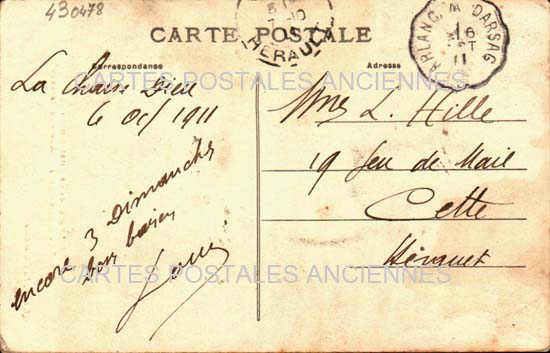 430478
CARTE POSTALE
HÉRAULT
ARLANC À DARSAC
6
OCT
11
Correspondance
Adresse
CARTES POSTALES ANCIENNES
La Chaise Dieu
6 Oct 1911
encore 3 Dimanches
bons baisers
Mme L. Hille
19 Jeu de Mail
Cette
Hérault
CARTES POSTALES ANCIENNES